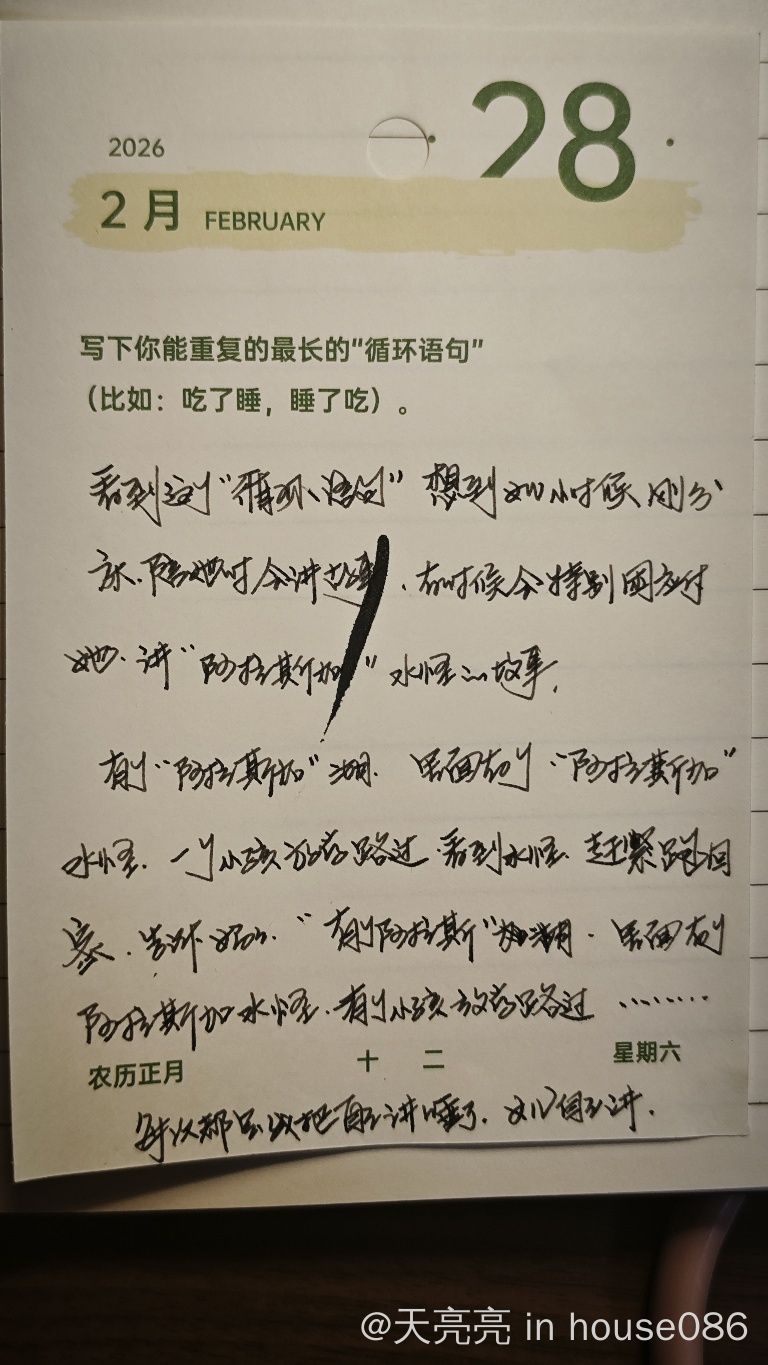 2026
28
2月 FEBRUARY
写下你能重复的最长的“循环语句”
（比如：吃了睡，睡了吃）。
看到这个“循环语句”想到女儿小时候刚分
床.陪她时会讲故事.有时候会特别困应付
她.讲“阿拉斯加”水怪的故事.
有个“阿拉斯加”湖.里面有个“阿拉斯加”
水怪.一个小孩放学路过看到水怪.赶紧跑回
家.告诉妈妈.“有个阿拉斯加湖.里面有个
阿拉斯加水怪.有个小孩放学路过………
农历正月 十二 星期六
每次都是我把自己讲睡了.女儿自己讲.
@天亮亮 in house086